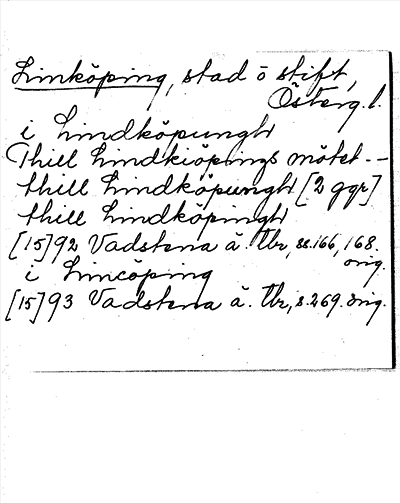 Linköping, stad o stift,
Österg. l.
i Lindköpungh
Thill Lindkiöpings mötet --
thill Lindköpungh [2 ggr]
thill Lindköpingh
[15]92 Vadstena ä. Tbr, ss. 166, 168.
orig.
i Lincöping
[15]93 Vadstena ä. Tbr, s. 269. orig.